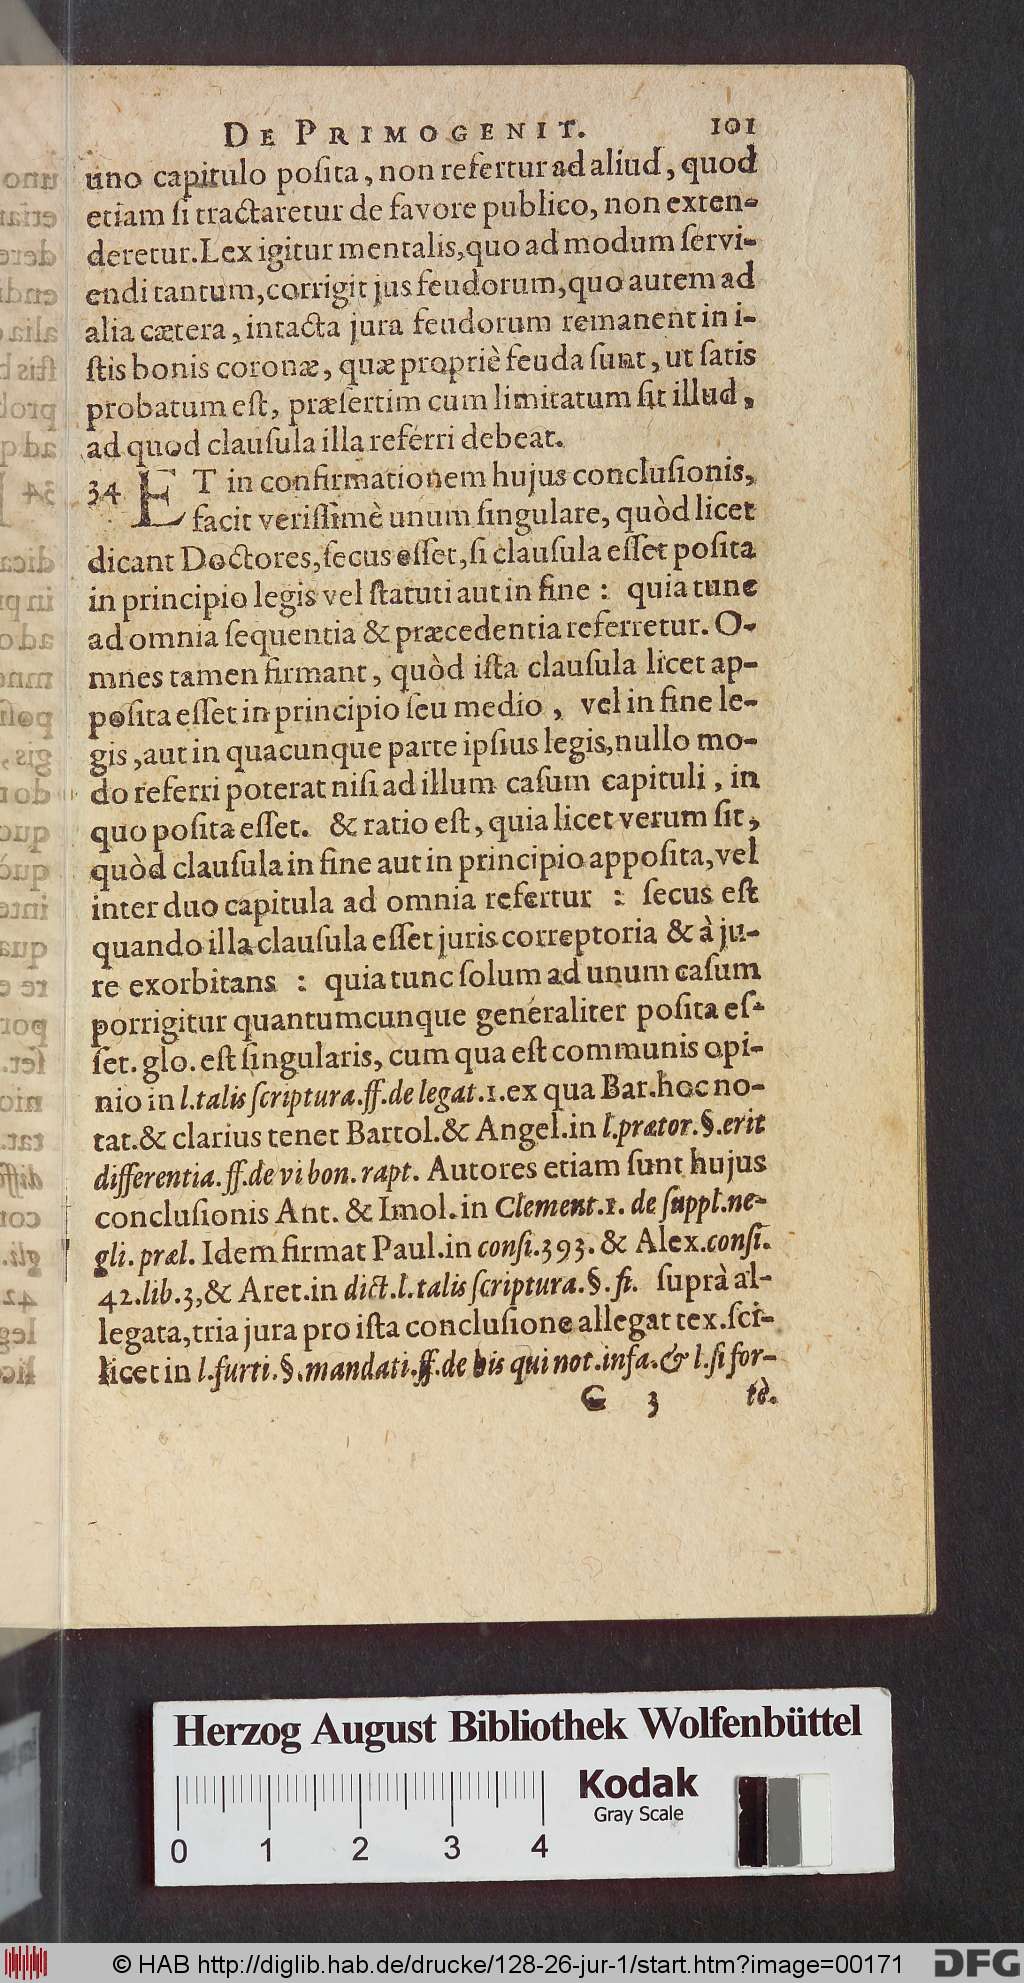 DE PRIMOGENIT. 101
uno capitulo poſita, non refertur ad aliud, quod
etiam ſi tractaretur de favore publico, non exten-
deretur. Lex igitur mentalis, quo ad modum ſervi-
endi tantum, corrigit jus feudorum, quo autem ad
alia cætera, intacta jura feudorum remanent in i-
ſtis bonis coronæ, quæ propriè feuda ſunt, ut ſatis
probatum eſt, præſertim cum limitatum ſit illud,
ad quod clauſula illa referri debeat.
34 ET in confirmationem hujus concluſionis,
facit veriſſimè unum ſingulare, quòd licet
dicant Doctores, ſecus eſſet, ſi clauſula eſſet poſita
in principio legis vel ſtatuti aut in fine : quia tunc
ad omnia ſequentia & præcedentia referretur. O-
mnes tamen firmant, quòd iſta clauſula licet ap-
poſita eſſet in principio ſeu medio, vel in fine le-
gis, aut in quacunque parte ipſius legis, nullo mo-
do referri poterat niſi ad illum caſum capituli, in
quo poſita eſſet. & ratio eſt, quia licet verum ſit,
quòd clauſula in fine aut in principio appoſita, vel
inter duo capitula ad omnia refertur : ſecus eſt
quando illa clauſula eſſet juris correptoria & à ju-
re exorbitans : quia tunc ſolum ad unum caſum
porrigitur quantumcunque generaliter poſita eſ-
ſet. glo. eſt ſingularis, cum qua eſt communis opi-
nio in l. talis ſcriptura. ff. de legat. 1. ex qua Bar. hoc no-
tat. & clarius tenet Bartol. & Angel. in l. prætor. §. erit
differentia. ff. de vi bon. rapt. Autores etiam ſunt hujus
concluſionis Ant. & Imol. in Clement. 1. de ſuppl. ne-
gli. præl. Idem firmat Paul. in conſi. 393. & Alex. conſi.
42. lib. 3, & Aret. in dict. l. talis ſcriptura. §. fi. ſuprà al-
legata, tria jura pro iſta concluſione allegat tex. ſci-
licet in l. furti. §. mandati. ff. de his qui not. infa. & l. ſi for-
G 3 tè.
Herzog August Bibliothek Wolfenbüttel
Kodak
Gray Scale
0 1 2 3 4
© HAB http://diglib.hab.de/drucke/128-26-jur-1/start.htm?image=00171
DFG